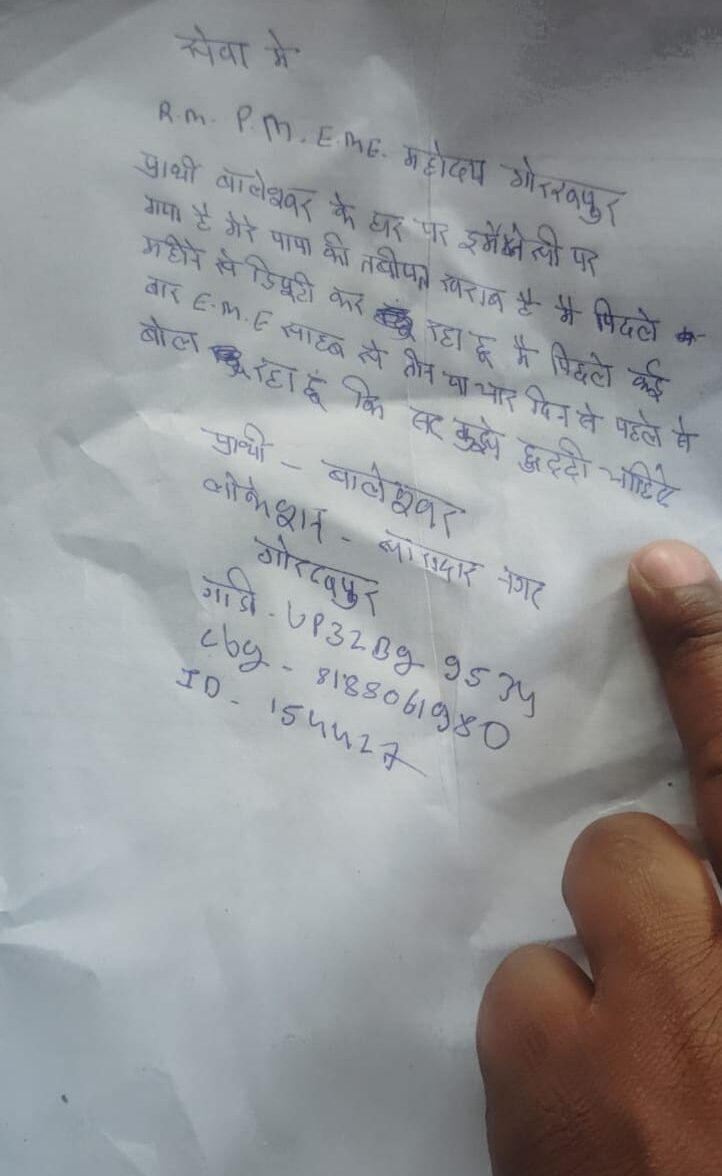 सेवा मे
R.M. P.M. E.ME. महोदय गोरखपुर
प्रार्थी बालेश्वर के घर पर इमैजेन्सी पर
गया है मेरे पापा की तबीयत खराब है मै पिछले
महीने से डिपूटी कर रहा हू मै पिछले कई
बार E.M.E साहब से तीन या चार दिन से पहले से
बोल रहा हूं कि सर मुझे छुट्टी चाहिए
प्रार्थी - बालेश्वर
लोकेशन - नगर
गोरखपुर
गाडी - UP32BG 9534
- 8188061980
ID - 154427